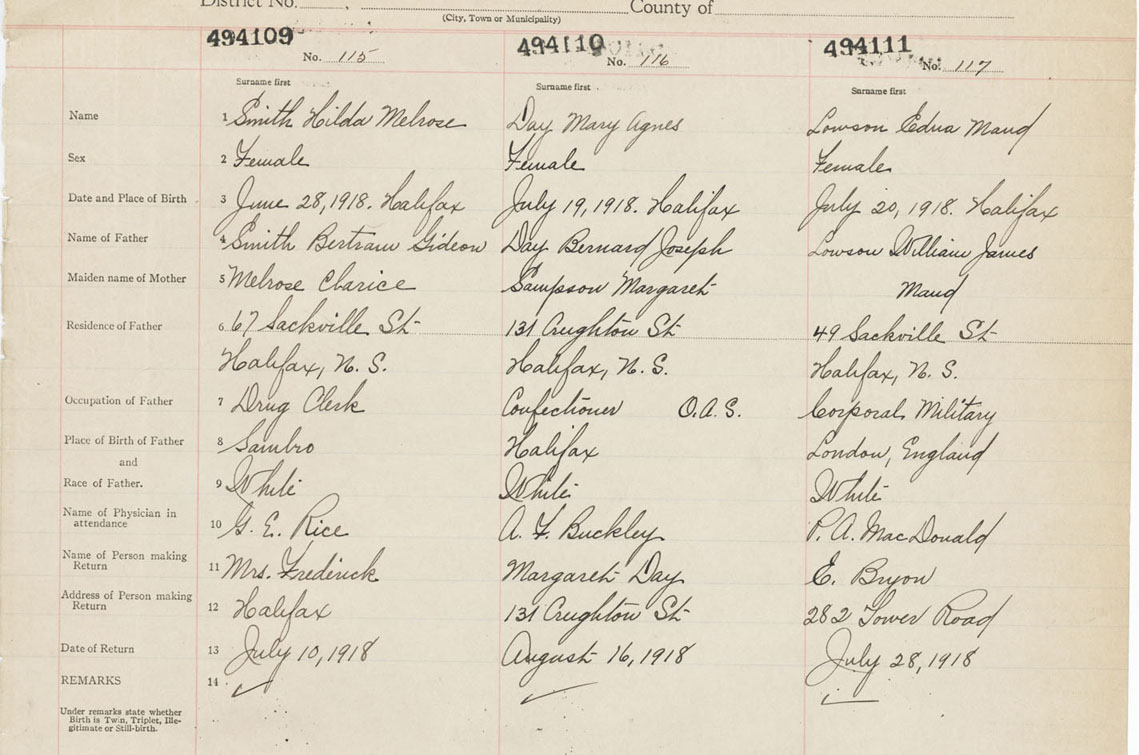 District No. County of
(City, Town or Municipality)
494109 494110 494111
No. 115 No. 116 No. 117
Surname first Surname first Surname first
Name 1 Smith Hilda Melrose Day Mary Agnes Lowson Edna Maud
Sex 2 Female Female Female
Date and Place of Birth 3 June 28, 1918. Halifax July 19, 1918. Halifax July 20, 1918. Halifax
Name of Father 4 Smith Bertram Gideon Day Bernard Joseph Lowson William James
Maiden name of Mother 5 Melrose Clarice Sampson Margaret Maud
Residence of Father 6. 67 Sackville St 131 Creighton St 49 Sackville St
Halifax, N. S. Halifax, N. S. Halifax, N. S.
Occupation of Father 7 Drug Clerk Confectioner O.A.S. Corporal Military
Place of Birth of Father 8 Sambro Halifax London, England
and
Race of Father. 9 White White White
Name of Physician in attendance 10 G. E. Rice A. F. Buckley P. A. MacDonald
Name of Person making Return 11 Mrs. Frederick Margaret Day E. Bryon
Address of Person making Return 12 Halifax 131 Creighton St 282 Tower Road
Date of Return 13 July 10, 1918 August 16, 1918 July 28, 1918
REMARKS 14
Under remarks state whether
Birth is Twin, Triplet, Ille-
gitimate or Still-birth.